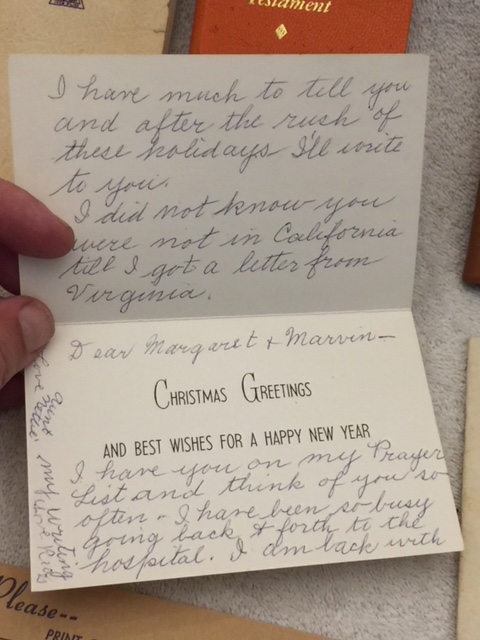 Testament
I have much to tell you
and after the rush of
these holidays I'll write
to you.
I did not know you
were not in California
till I got a letter from
Virginia.
Dear Margaret & Marvin—
CHRISTMAS GREETINGS
AND BEST WISHES FOR A HAPPY NEW YEAR
I have you on my Prayer
List and think of you so
often - I have been so busy
going back & forth to the
hospital. I am back with
my writing
Love
Please--
PRINT